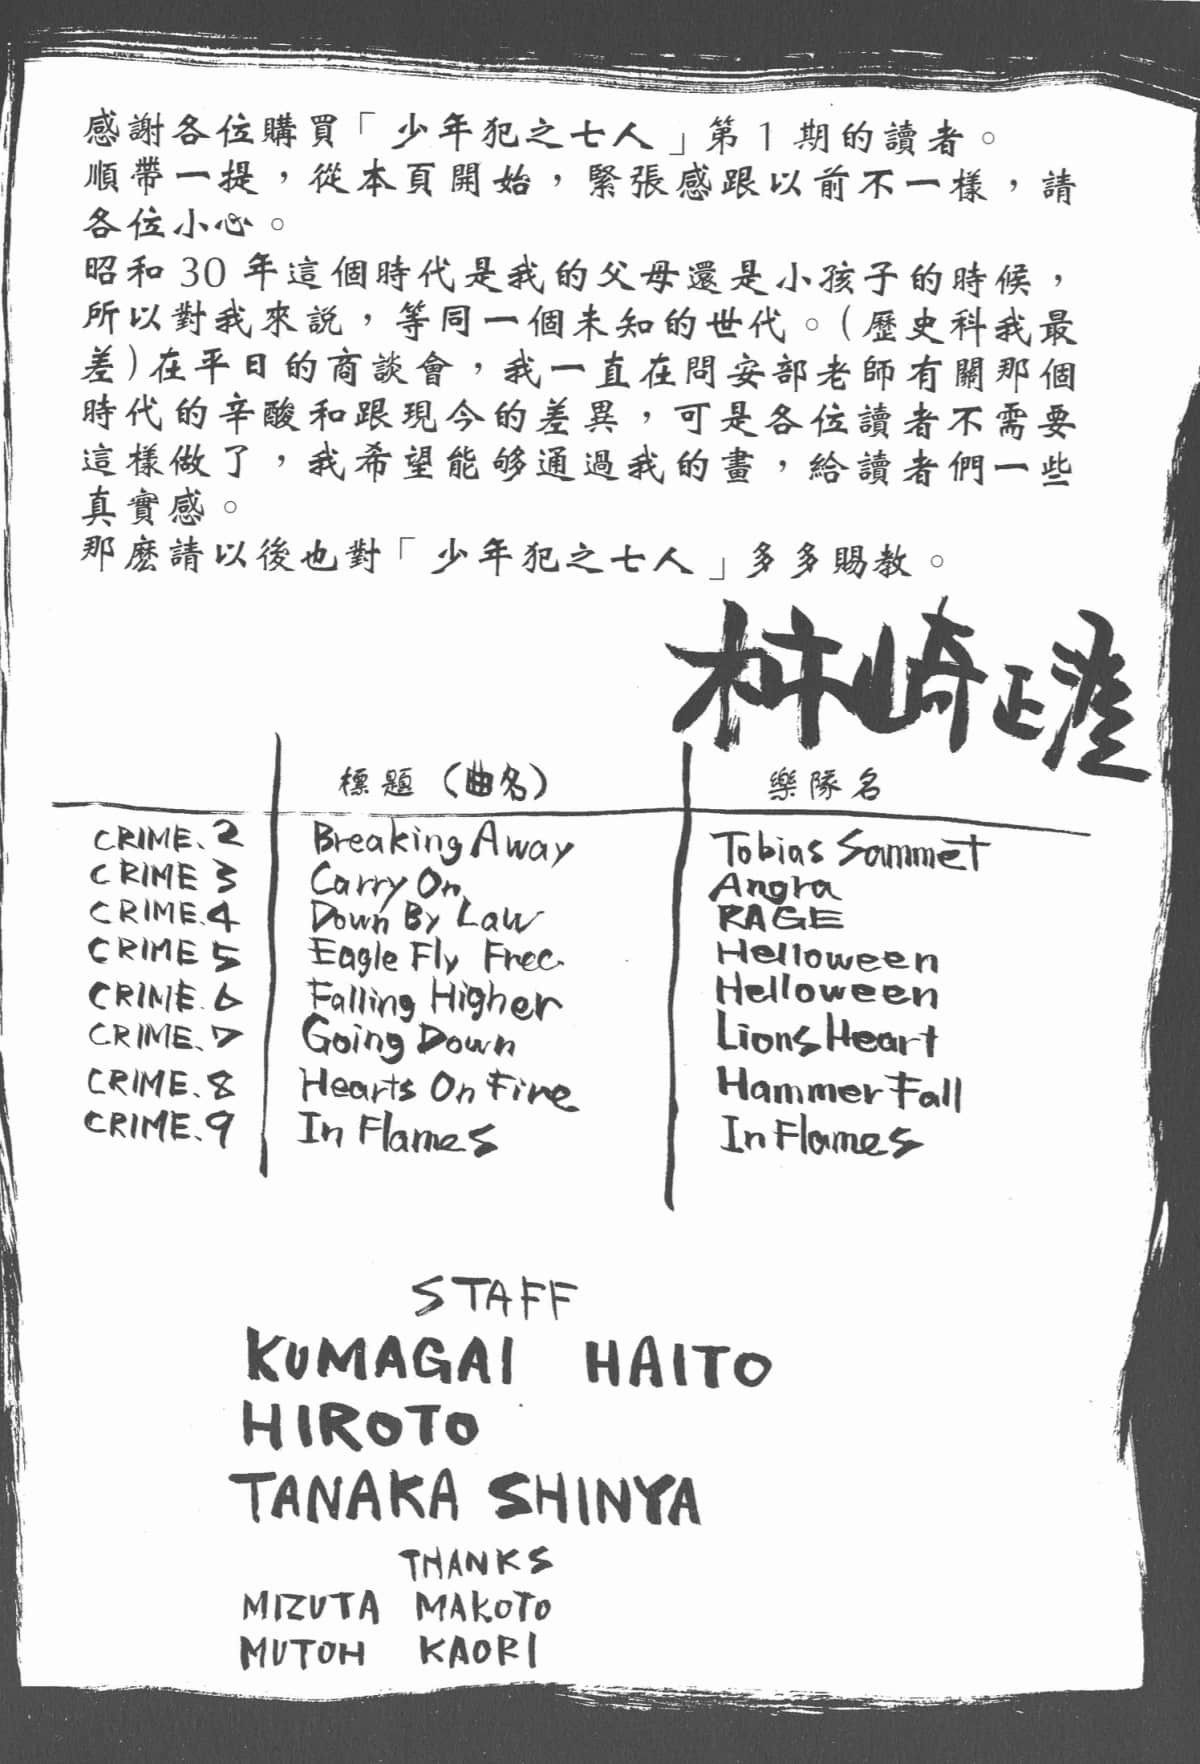 感謝各位購買「少年犯之七人」第1期的讀者。
順帶一提，從本頁開始，緊張感跟以前不一樣，請
各位小心。
昭和30年這個時代是我的父母還是小孩子的時候，
所以對我來説，等同一個未知的世代。(歷史科我最
差)在平日的商談會，我一直在問安部老師有關那個
時代的辛酸和跟現今的差異，可是各位讀者不需要
這樣做了，我希望能够通過我的畫，給讀者們一些
真實感。
那麽請以後也對「少年犯之七人」多多賜教。
柿崎正澄
標題（曲名） 樂隊名
CRIME.2 Breaking Away Tobias Sammet
CRIME 3 Carry On Angra
CRIME.4 Down By Law RAGE
CRIME 5 Eagle Fly Free Helloween
CRIME.6 Falling Higher Helloween
CRIME.7 Going Down Lions Heart
CRIME.8 Hearts On Fire Hammer Fall
CRIME.9 In Flames In Flames
STAFF
KUMAGAI HAITO
HIROTO
TANAKA SHINYA
THANKS
MIZUTA MAKOTO
MUTOH KAORI